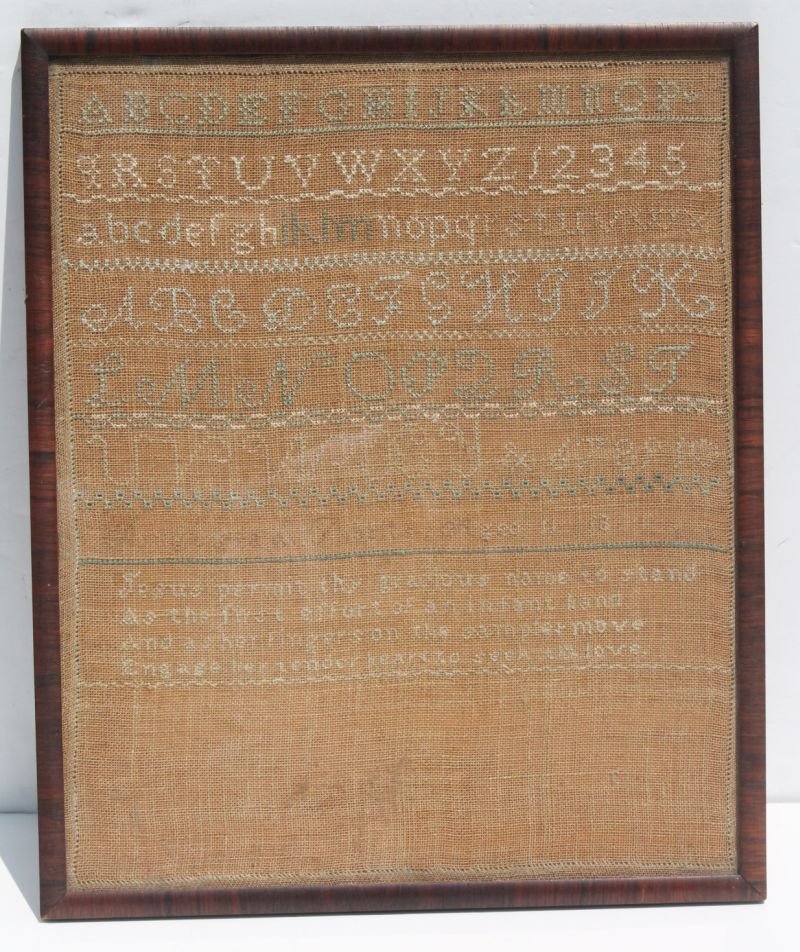 A B C D E F G H I J K L M N O P
Q R S T U V W X Y Z 1 2 3 4 5
a b c d e f g h i k l m n o p q r s t u v w x
A B C D E F G H I J K
L M N O P Q R S T
U V W X Y Z & 6 7 8 9 10
Aged 11
Jesus permit thy gracious name to stand
As the first effort of an infant hand
And as her fingers on the sampler move
Engage her tender heart to seek thy love.